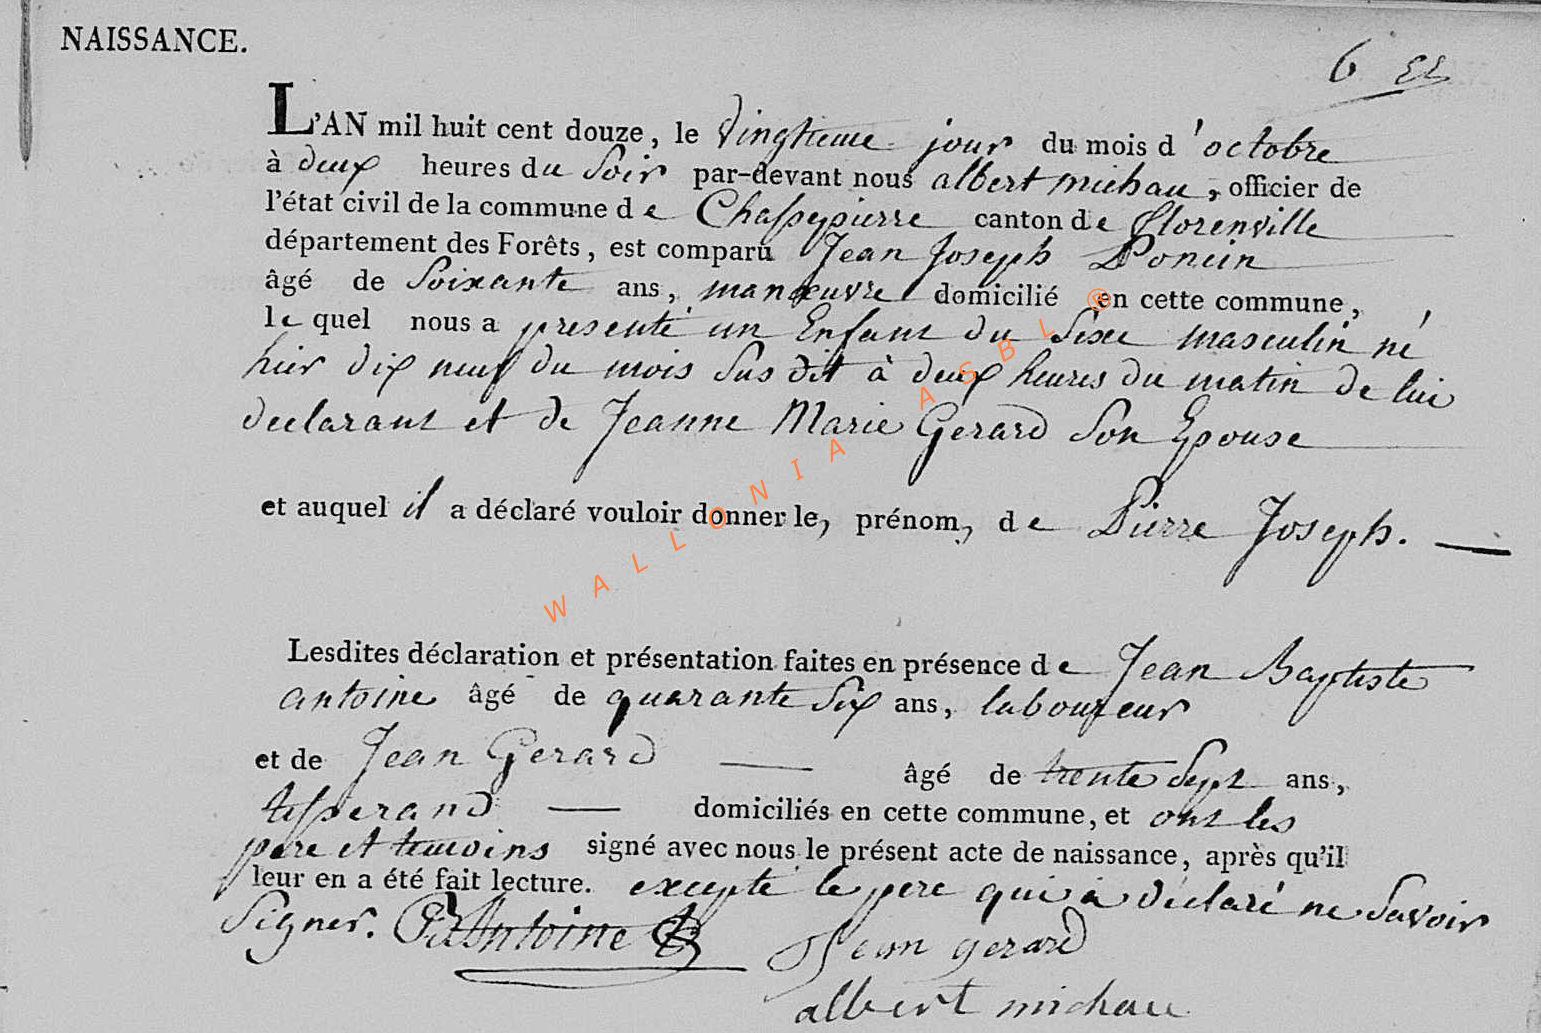 NAISSANCE.
6
L'AN mil huit cent douze, le vingtieme jour du mois d'octobre
à deux heures du soir par-devant nous albert michau, officier de
l'état civil de la commune de Chassepierre canton de florenville
département des Forêts, est comparu Jean Joseph Poncin
âgé de soixante ans, manœuvre domicilié en cette commune,
lequel nous a presenté un Enfant du sexe masculin né
hier dix neuf du mois susdit à deux heures du matin de lui
declarant et de Jeanne Marie Gerard son Epouse
et auquel il a déclaré vouloir donner les prénoms de Pierre Joseph.
Lesdites déclaration et présentation faites en présence de Jean Baptiste
antoine âgé de quarante six ans, laboureur
et de Jean Gerard âgé de trente sept ans,
tisserand domiciliés en cette commune, et ont les
pere et temoins signé avec nous le présent acte de naissance, après qu'il
leur en a été fait lecture. excepté le pere qui a déclaré ne savoir
signer. Antoine Jean gerard
albert michau
WALLONIA ASBL ®